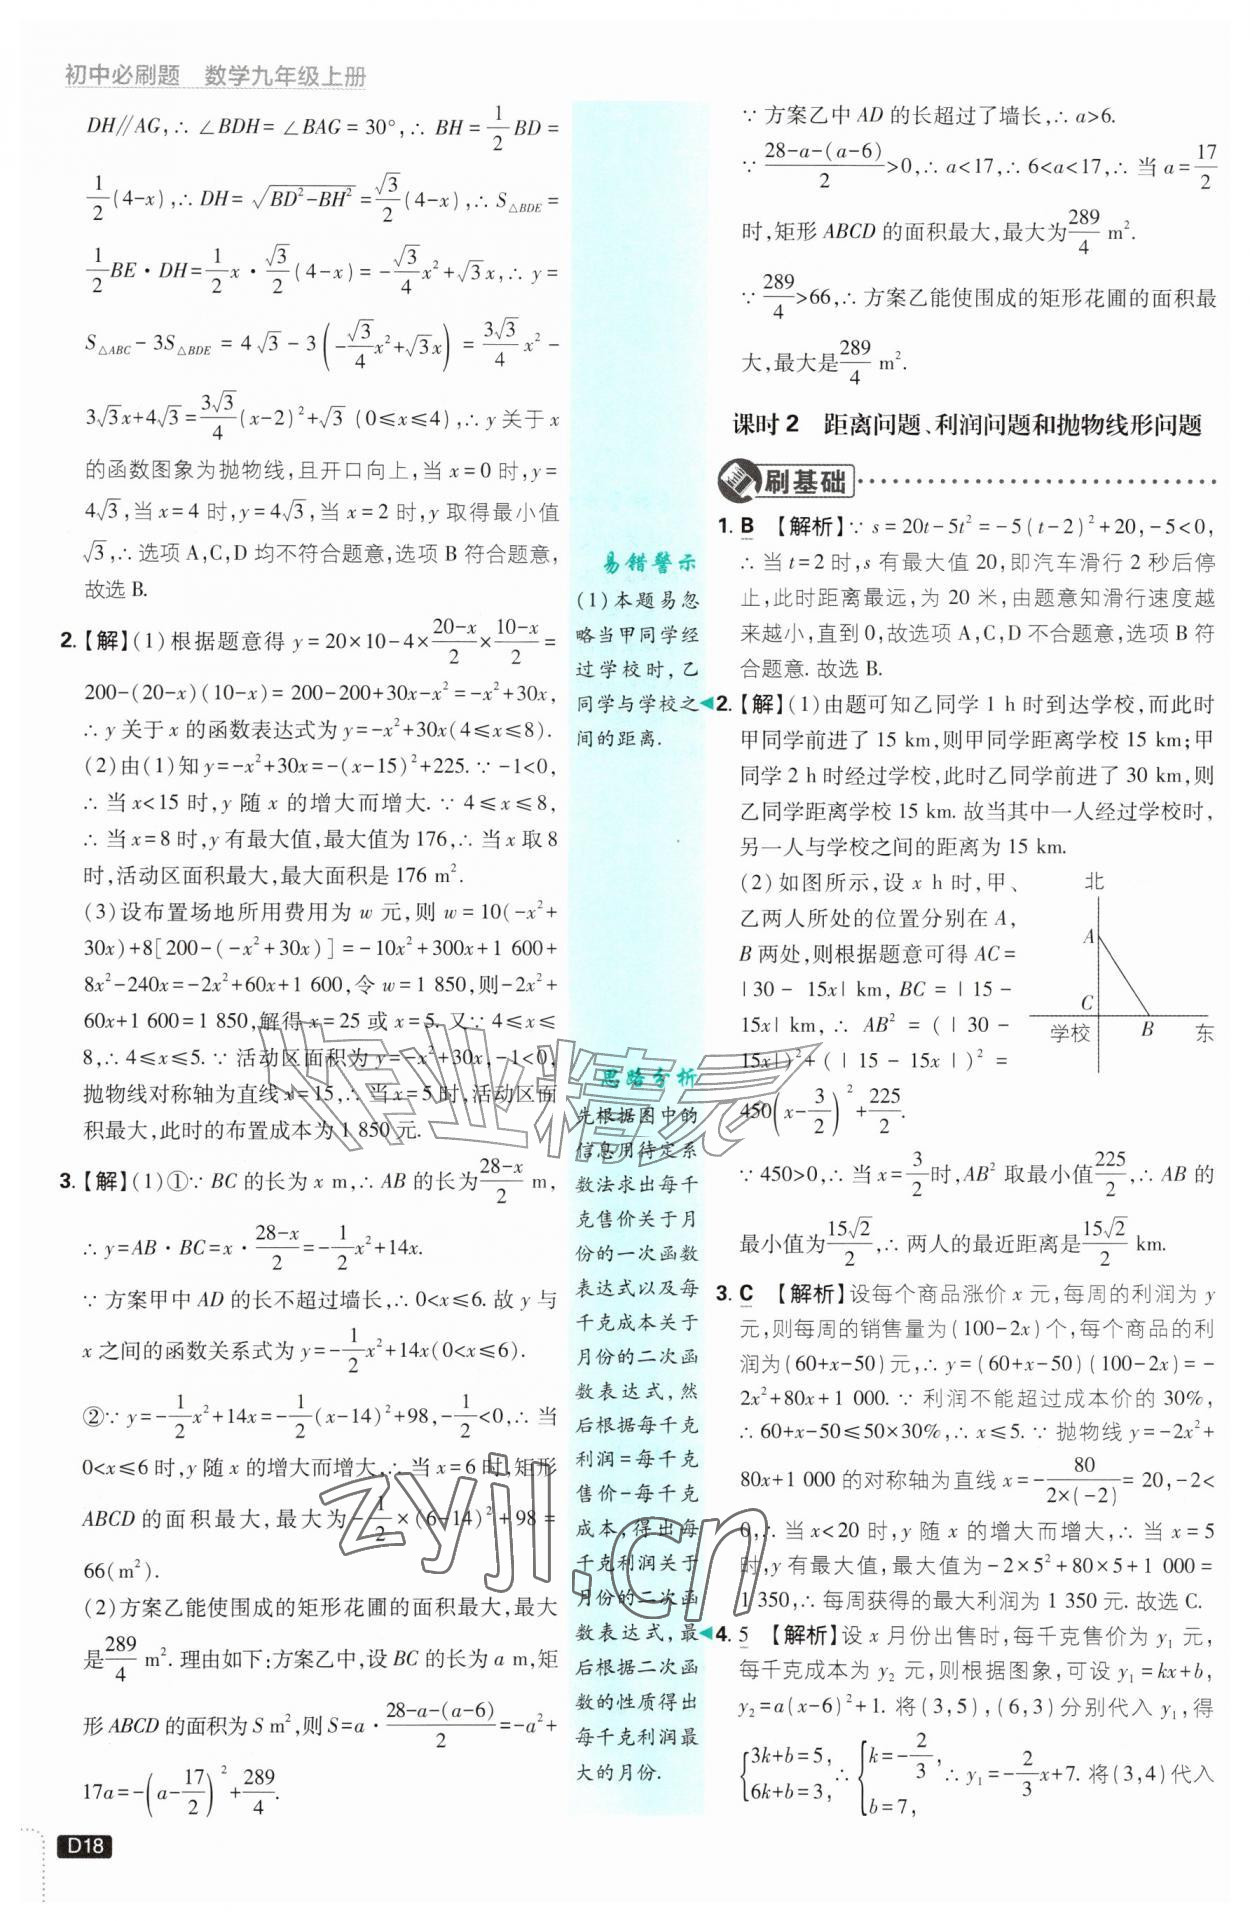 初中必刷题 数学九年级上册
DH∥AG,∴ ∠BDH=∠BAG=30°,∴ BH=1/2 BD=
1/2(4-x),∴ DH=√(BD²-BH²)=√3/2(4-x),∴ S△BDE=
1/2 BE·DH=1/2 x·√3/2(4-x)=-√3/4 x²+√3x,∴ y=
S△ABC-3S△BDE=4√3-3(-√3/4 x²+√3x)=3√3/4 x²-
3√3x+4√3=3√3/4(x-2)²+√3(0≤x≤4),∴ y关于x
的函数图象为抛物线,且开口向上,当x=0时,y=
4√3,当x=4时,y=4√3,当x=2时,y取得最小值
√3,∴ 选项A,C,D均不符合题意,选项B符合题意,
故选B.
2.【解】(1)根据题意得 y=20×10-4×(20-x)/2×(10-x)/2=
200-(20-x)(10-x)=200-200+30x-x²=-x²+30x,
∴ y关于x的函数表达式为y=-x²+30x(4≤x≤8).
(2)由(1)知y=-x²+30x=-(x-15)²+225.∵ -1<0,
∴ 当x<15时,y随x的增大而增大.∵ 4≤x≤8,
∴ 当x=8时,y有最大值,最大值为176,∴ 当x取8
时,活动区面积最大,最大面积是176 m².
(3)设布置场地所用费用为w元,则w=10(-x²+
30x)+8[200-(-x²+30x)]=-10x²+300x+1 600+
8x²-240x=-2x²+60x+1 600,令w=1 850,则-2x²+
60x+1 600=1 850,解得x=25或x=5.又∵ 4≤x≤
8,∴ 4≤x≤5.∵ 活动区面积为y=-x²+30x,-1<0,
抛物线对称轴为直线x=15,∴ 当x=5时,活动区面
积最大,此时的布置成本为1 850元.
3.【解】(1)①∵ BC的长为x m,∴ AB的长为(28-x)/2 m,
∴ y=AB·BC=x·(28-x)/2=-1/2 x²+14x.
∵ 方案甲中AD的长不超过墙长,∴ 0<x≤6.故y与
x之间的函数关系式为y=-1/2 x²+14x(0<x≤6).
②∵ y=-1/2 x²+14x=-1/2(x-14)²+98,-1/2<0,∴ 当
0<x≤6时,y随x的增大而增大,∴ 当x=6时,矩形
ABCD的面积最大,最大为-1/2×(6-14)²+98=
66(m²).
(2)方案乙能使围成的矩形花圃的面积最大,最大
是289/4 m².理由如下:方案乙中,设BC的长为a m,矩
形ABCD的面积为S m²,则S=a·(28-a-(a-6))/2=-a²+
17a=-(a-17/2)²+289/4.
D18
易错警示
(1)本题易忽
略当甲同学经
过学校时,乙
同学与学校之
间的距离.
思路分析
先根据图中的
信息用待定系
数法求出每千
克售价关于月
份的一次函数
表达式以及每
千克成本关于
月份的二次函
数表达式,然
后根据每千克
利润=每千克
售价-每千克
成本,得出每
千克利润关于
月份的二次函
数表达式,最
后根据二次函
数的性质得出
每千克利润最
大的月份.
∵ 方案乙中AD的长超过了墙长,∴ a>6.
∵ (28-a-(a-6))/2>0,∴ a<17,∴ 6<a<17,∴ 当a=17/2
时,矩形ABCD的面积最大,最大为289/4 m².
∵ 289/4>66,∴ 方案乙能使围成的矩形花圃的面积最
大,最大是289/4 m².
课时2 距离问题、利润问题和抛物线形问题
刷基础
1. B 【解析】∵ s=20t-5t²=-5(t-2)²+20,-5<0,
∴ 当t=2时,s有最大值20,即汽车滑行2秒后停
止,此时距离最远,为20米,由题意知滑行速度越
来越小,直到0,故选项A,C,D不合题意,选项B符
合题意.故选B.
2.【解】(1)由题可知乙同学1 h时到达学校,而此时
甲同学前进了15 km,则甲同学距离学校15 km;甲
同学2 h时经过学校,此时乙同学前进了30 km,则
乙同学距离学校15 km.故当其中一人经过学校时,
另一人与学校之间的距离为15 km.
(2)如图所示,设x h时,甲、
乙两人所处的位置分别在A,
B两处,则根据题意可得AC=
|30-15x| km,BC=|15-
15x| km,∴ AB²=(|30-
15x|)²+(|15-15x|)²=
450(x-3/2)²+225/2.
北
A
C
学校
B
东
∵ 450>0,∴ 当x=3/2时,AB²取最小值225/2,∴ AB的
最小值为15√2/2,∴ 两人的最近距离是15√2/2 km.
3. C 【解析】设每个商品涨价x元,每周的利润为y
元,则每周的销售量为(100-2x)个,每个商品的利
润为(60+x-50)元,∴ y=(60+x-50)(100-2x)=-
2x²+80x+1 000.∵ 利润不能超过成本价的30%,
∴ 60+x-50≤50×30%,∴ x≤5.∵ 抛物线y=-2x²+
80x+1 000的对称轴为直线x=-80/(2×(-2))=20,-2<
0,∴ 当x<20时,y随x的增大而增大,∴ 当x=5
时,y有最大值,最大值为-2×5²+80×5+1 000=
1 350,∴ 每周获得的最大利润为1 350元.故选C.
4. 5 【解析】设x月份出售时,每千克售价为y₁元,
每千克成本为y₂元,则根据图象,可设y₁=kx+b,
y₂=a(x-6)²+1.将(3,5),(6,3)分别代入y₁,得
{3k+b=5, 6k+b=3, ∴ {k=-2/3, b=7, ∴ y₁=-2/3 x+7.将(3,4)代入
作业精灵
zyjl.cn